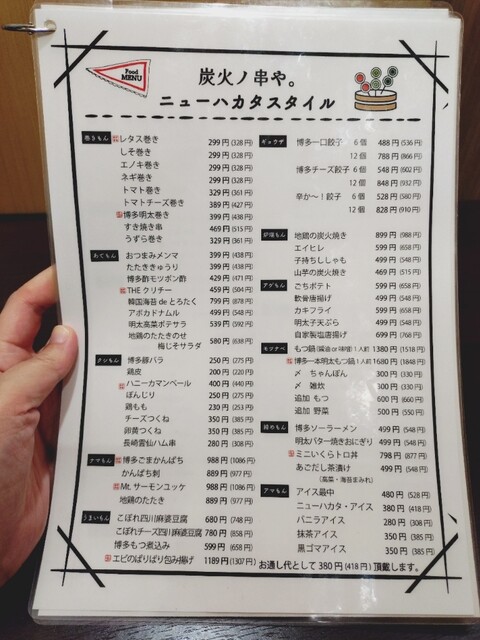 Food
MENU
炭火ノ串や。
ニューハカタスタイル
巻きもん
レタス巻き 299円(328円)
しそ巻き 299円(328円)
エノキ巻き 299円(328円)
ネギ巻き 299円(328円)
トマト巻き 329円(361円)
トマトチーズ巻き 389円(427円)
博多明太巻き 399円(438円)
すき焼き串 469円(515円)
うずら巻き 329円(361円)
おつまみメンマ 399円(438円)
たたききゅうり 399円(438円)
博多酢モツポン酢 429円(471円)
THE クリチー 459円(504円)
韓国海苔 de とろたく 799円(878円)
アボカドナムル 499円(548円)
明太高菜ポテサラ 539円(592円)
地鶏のたたきのせ
梅じそサラダ 580円(638円)
クシもん
博多豚バラ 250円(275円)
鶏皮 200円(220円)
ハニーカマンベール 400円(440円)
ぼんじり 250円(275円)
鶏もも 230円(253円)
チーズつくね 350円(385円)
卵黄つくね 350円(385円)
長崎雲仙ハム串 280円(308円)
ナマもん
博多ごまかんぱち 988円(1086円)
かんぱち刺 889円(977円)
Mt. サーモンユッケ 988円(1086円)
地鶏のたたき 889円(977円)
うまいもん
こぼれ四川麻婆豆腐 680円(748円)
こぼれチーズ四川麻婆豆腐 780円(858円)
博多もつ煮込み 599円(658円)
エビのぱりぱり包み揚げ 1189円(1307円)
ギョウザ
博多一口餃子 6個 488円(536円)
12個 788円(866円)
博多チーズ餃子 6個 548円(602円)
12個 848円(932円)
辛か〜！餃子 6個 528円(580円)
12個 828円(910円)
炉端もん
地鶏の炭火焼き 899円(988円)
エイヒレ 599円(658円)
子持ちししゃも 499円(548円)
山芋の炭火焼き 469円(515円)
アゲもん
ごちポテト 599円(658円)
軟骨唐揚げ 499円(548円)
カキフライ 599円(658円)
明太子天ぷら 499円(548円)
自家製塩唐揚げ 699円(768円)
モツナベ
もつ鍋(醤油 or 味噌)1人前 1380円(1518円)
博多一本明太もつ鍋1人前 1680円(1848円)
〆 ちゃんぽん 300円(330円)
〆 雑炊 300円(330円)
追加 もつ 600円(660円)
追加 野菜 500円(550円)
締めもん
博多ソーラーメン 499円(548円)
明太バター焼きおにぎり 499円(548円)
ミニいくらトロ丼 798円(877円)
あごだし茶漬け 499円(548円)
(高菜・海苔まみれ)
アマもん
アイス最中 480円(528円)
ニューハカタ・アイス 380円(418円)
バニラアイス 280円(308円)
抹茶アイス 350円(385円)
黒ゴマアイス 350円(385円)
お通し代として380円(418円)頂戴します。